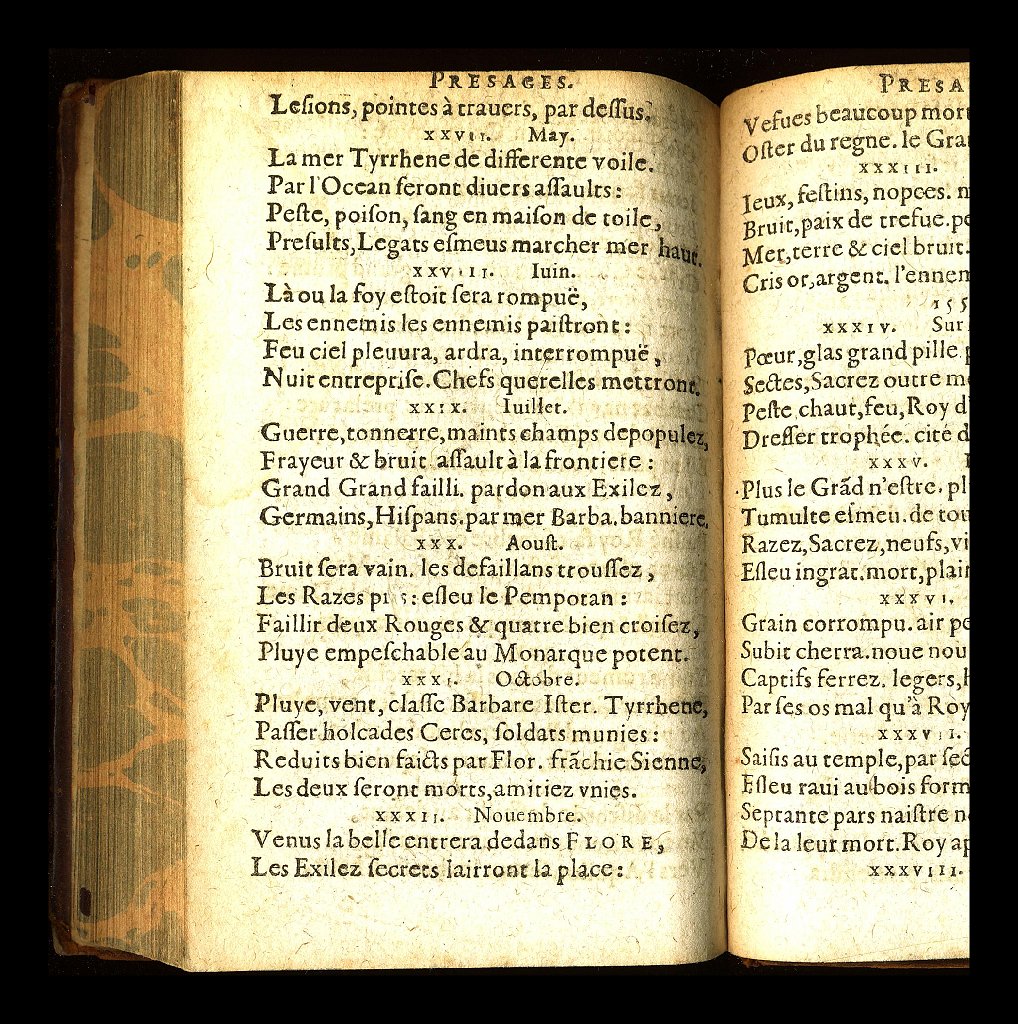 PRESAGES.
Lesions, pointes à trauers, par dessus.
XXVII. May.
La mer Tyrrhene de differente voile.
Par l'Ocean seront diuers assaults:
Peste, poison, sang en maison de toile,
Presults, Legats esmeus marcher mer haut.
XXVIII. Iuin.
Là ou la foy estoit sera rompuë,
Les ennemis les ennemis paistront:
Feu ciel pleuura, ardra, interrompuë,
Nuit entreprise. Chefs querelles mettront.
XXIX. Iuillet.
Guerre, tonnerre, maints champs depopulez,
Frayeur & bruit assault à la frontiere:
Grand Grand failli. pardon aux Exilez,
Germains, Hispans. par mer Barba. banniere.
XXX. Aoust.
Bruit sera vain. les defaillans troussez,
Les Razes pris: esleu le Pempotan:
Faillir deux Rouges & quatre bien croisez,
Pluye empeschable au Monarque potent.
XXXI. Octobre.
Pluye, vent, classe Barbare Ister. Tyrrhene,
Passer holcades Ceres, soldats munies:
Reduits bien faicts par Flor. frãchie Sienne,
Les deux seront morts, amitiez vnies.
XXXII. Nouembre.
Venus la belle entrera dedans FLORE,
Les Exilez secrets lairront la place:
PRESA
Vefues beaucoup mor
Oster du regne. le Gra
XXXIII.
Ieux, festins, nopces.
Bruit, paix de trefue. p
Mer, terre & ciel bruit.
Cris or, argent. l'ennem
155
XXXIV. Sur
Pœur, glas grand pille
Sectes, Sacrez outre m
Peste, chaut, feu, Roy d'
Dresser trophée. cité d
XXXV.
Plus le Grãd n'estre. pl
Tumulte esmeu. de tou
Razez, Sacrez, neufs, vi
Esleu ingrat. mort, plain
XXXVI.
Grain corrompu. air pe
Subit cherra. noue nou
Captifs ferrez. legers, h
Par ses os mal qu'à Roy
XXXVII.
Saisis au temple, par sec
Esleu raui au bois form
Septante pars naistre n
De la leur mort. Roy ap
XXXVIII.